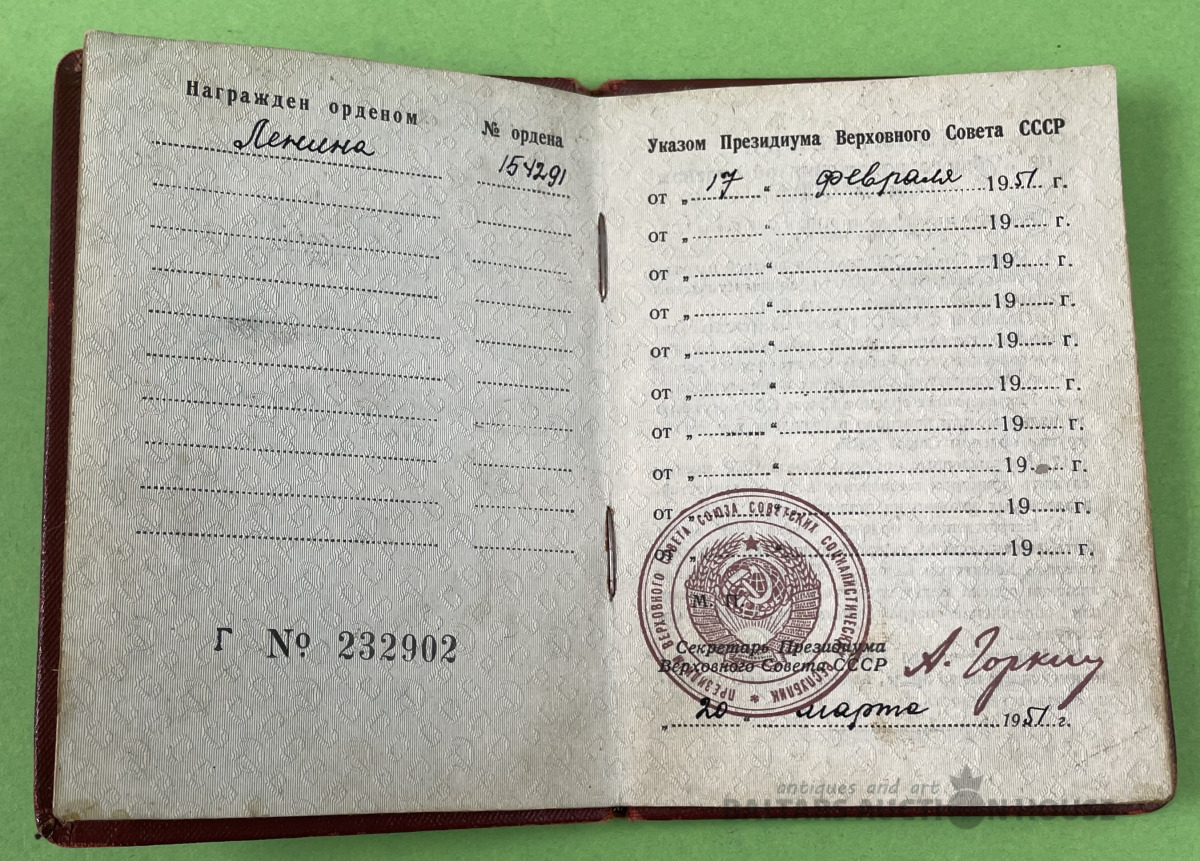 Награжден орденом
№ ордена
Ленина
154291
Г № 232902
Указом Президиума Верховного Совета СССР
от „ 17 “ февраля 1951 г.
от „ “ 19 г.
от „ “ 19 г.
от „ “ 19 г.
от „ “ 19 г.
от „ “ 19 г.
от „ “ 19 г.
от „ “ 19 г.
от „ “ 19 г.
„ “ 19 г.
ПРЕЗИДИУМ ВЕРХОВНОГО СОВЕТА СОЮЗА СОВЕТСКИХ СОЦИАЛИСТИЧЕСКИХ РЕСПУБЛИК
М. П.
Секретарь Президиума
Верховного Совета СССР
А. Горкин
„ 20 “ марта 1951 г.
antiques and art
BALTARS AUCTION HOUSE